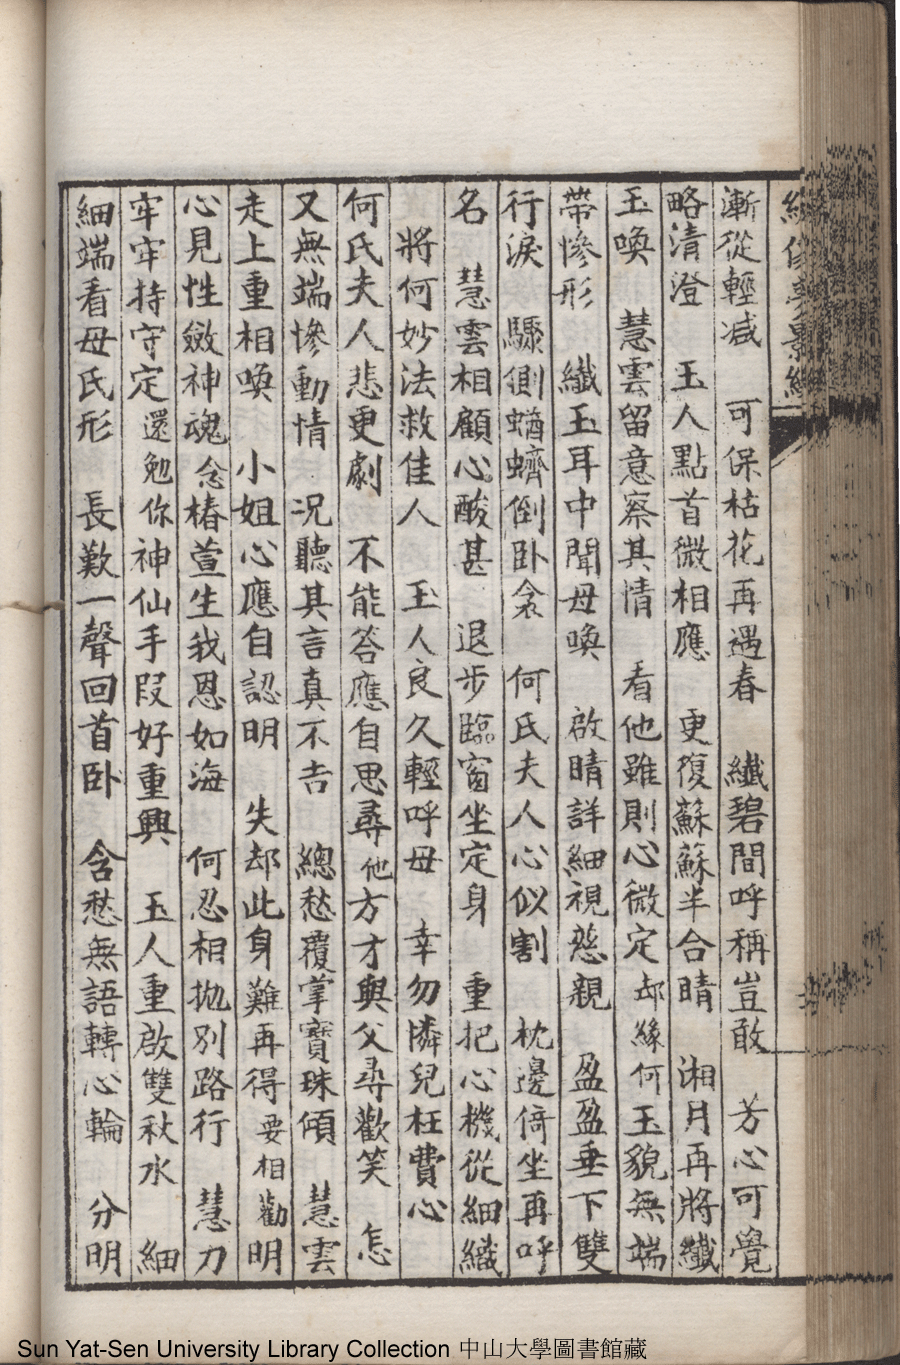 漸從輕减　可保枯花再遇春　纖碧間呼稱豈敢　芳心可覺
略清澄　玉人點首微相應　更復蘇蘇半合睛　湘月再將纖
玉喚　慧雲留意察其情　看他雖則心微定却緣何玉貌無端
帶慘形　纖玉耳中聞母喚　啟睛詳細視慈親　盈盈垂下雙
行淚　驟側蝤蠐倒卧衾　何氏夫人心似割　枕邊倚坐再呼
名　慧雲相顧心酸甚　退步臨窗坐定身　重把心機從細織
將何妙法救佳人　玉人良久輕呼母　幸勿憐兒枉費心
何氏夫人悲更劇　不能答應自思尋他方才與父尋歡笑　怎
又無端慘動情　况聽其言真不吉　總愁覆掌寶珠傾　慧雲
走上重相喚　小姐心應自認明　失却此身難再得要相勸明
心見性斂神魂念椿萱生我恩如海　何忍相拋別路行　慧刀
牢牢持守定還勉你神仙手段好重興　玉人重啟雙秋水　細
細端看母氏形　長歎一聲回首卧　含愁無語轉心輪　分明
Sun Yat-Sen University Library Collection 中山大學圖書館藏